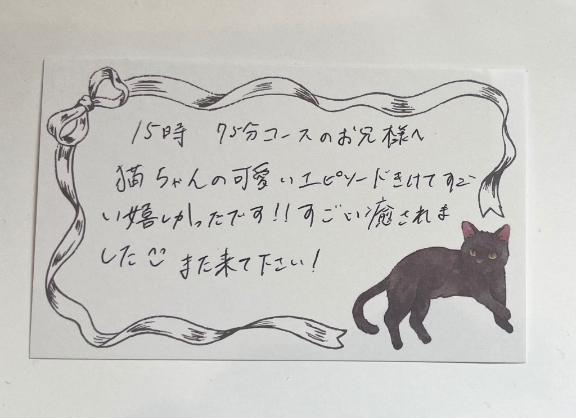 15時 75分コースのお兄様へ
猫ちゃんの可愛いエピソードきけてすご
い嬉しかったです!!すごい癒されま
した また来て下さい!